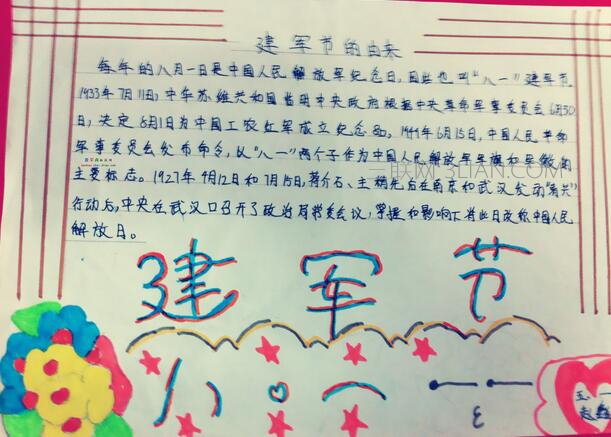 建军节的由来
每年的八月一日是中国人民解放军纪念日,因此也叫“八一”建军节.
1933年7月11日,中华苏维共和国临时中央政府根据中央革命军事委员会6月30
日,决定8月1日为中国工农红军成立纪念日。1949年6月15日,中国人民革命
军事委员会发布命令,以“八一”两个字作为中国人民解放军军旗和军徽的
主要标志。1927年4月12日和7月15日,蒋介石、主精先后在南京和武汉发动“清共”
行动后,中央在武汉口召开了政治局常委会议,掌握和影响下将此日改称中国人民
解放日。
建军节
八一
五.一
赵
三联网 3LIAN.COM